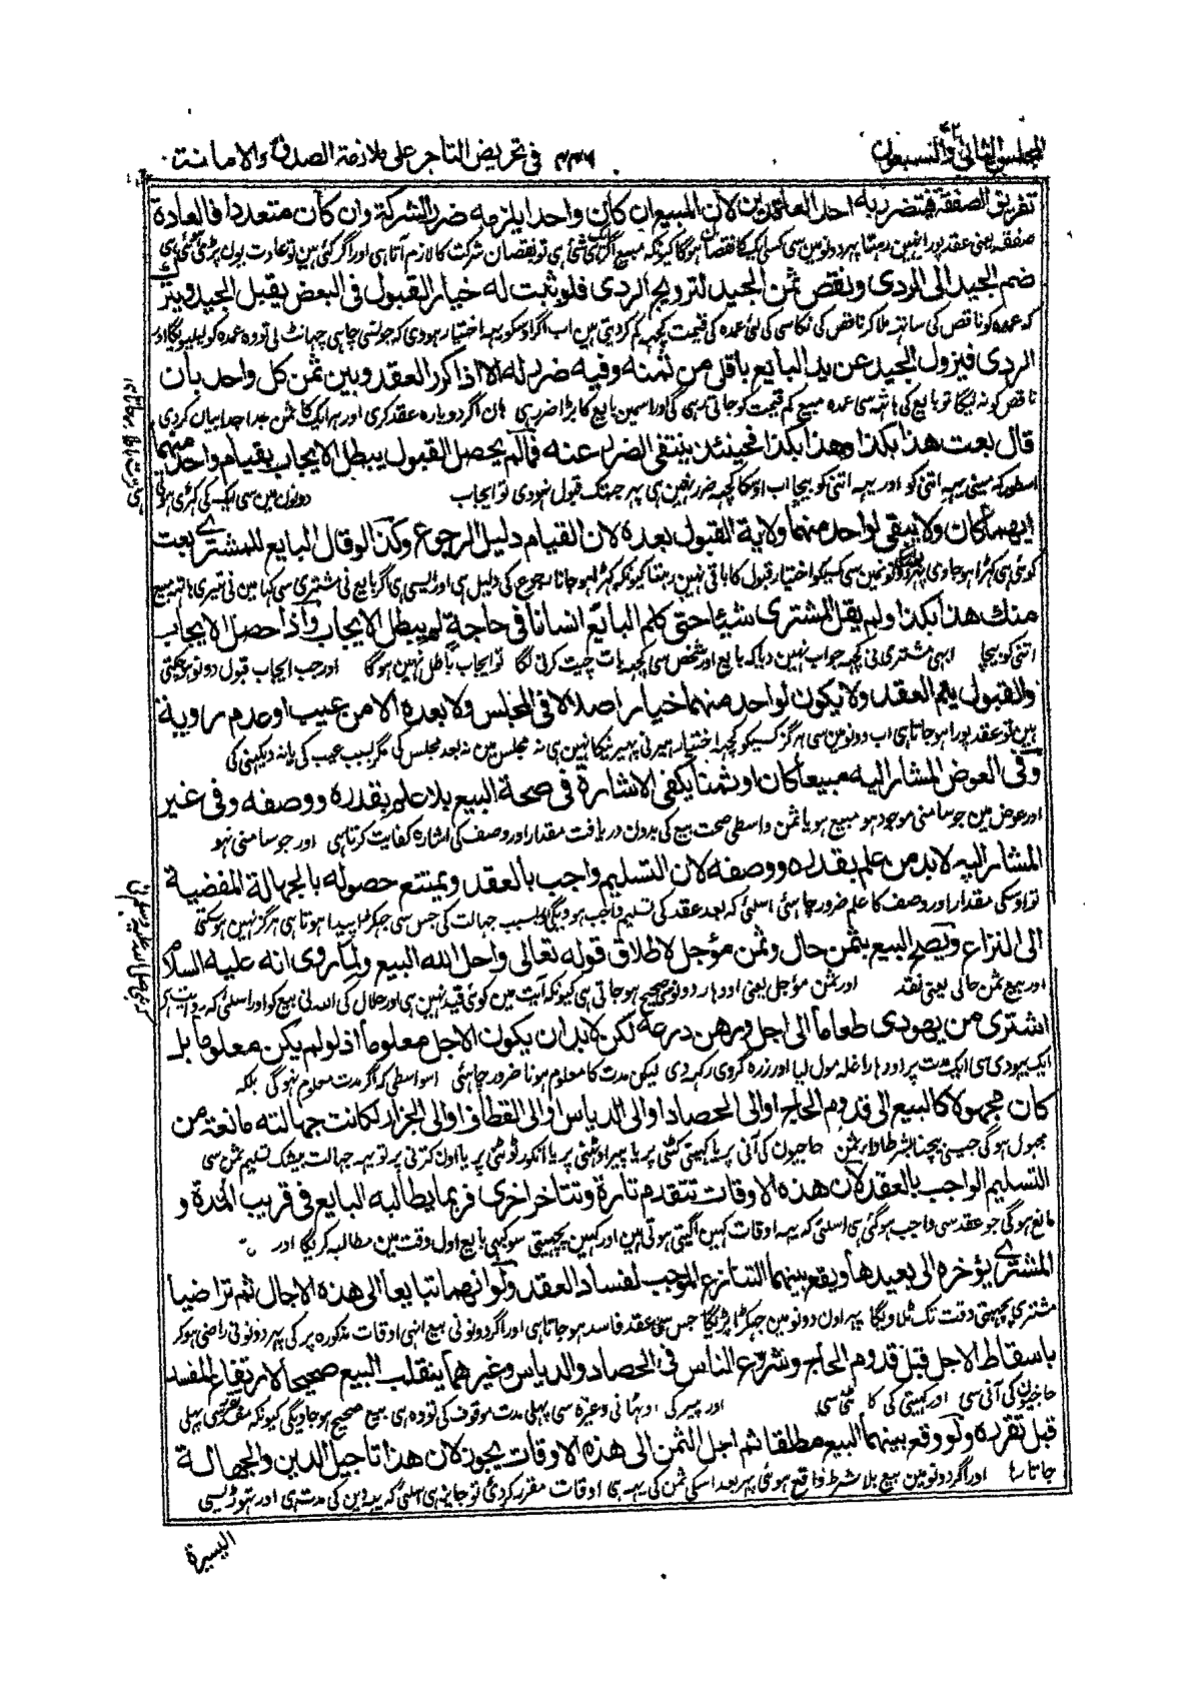 المجلس الثانی والسبعون ۷۲
۴۴۶ فی تحریض التاجر علی ملازمة الصدق والامانت
تفریق الصفقة فیتضرر به احد العاقدین لان المبیع ان کان واحدا یلزمه ضرر الشرکة وان کان متعددا فالعادة
صفقہ یعنی عقد پورا نہیں رہتا پہر دونو مین سی کسی ایک کا نقصان ہوگا کیونکہ مبیع اگر ایک شئ ہی تو نقصان شرکت کا لازم آتا ہی اور اگر کئی ہین تو عادت یون پڑی ہوئی ہی
ضم الجید الی الردی ونقص ثمن الجید لترویج الردی فلو ثبت له خیار القبول فی البعض یقبل الجید ویترک
کہ عمدہ کو ناقص کی ساتہہ ملا کر ناقص کی نکاسی کی لئی عمدہ کی قیمت کچہہ کم کردیتی ہین اب اگر اوسکو یہہ اختیار ہووی کہ جونسی چاہی چہانٹ لی تو وہ عمدہ کو لیلیویگا اور
الردی فیزول الجید عن ید البایع باقل من ثمنه وفیه ضرر له الا اذا کرر العقد وبین ثمن کل واحد بان
ناقص کو نہ لیگا تو بایع کی ہاتہہ سی عمدہ مبیع کم قیمت کو جاتی رہی گی اور اسمین بایع کا بڑا ضرر ہی ہان اگر دوبارہ عقد کری اور ہر ایک کا ثمن جدا جدا بیان کردی
قال بعت هذا بکذا وهذا بکذا فحینئذ ینتفی الضرر عنه فما لم یحصل القبول یبطل الایجاب بقیام واحد منهما
اسطور کہ مینی یہہ اتنی کو اور یہہ اتنی کو بیچا اب اوسکا کچہہ ضرر نہین ہی پہر جب تک قبول نہووی تو ایجاب دونون مین سی ایک کی کہڑی ہونی
ایهما کان ولا یبقی لواحد منهما ولایة القبول بعده لان القیام دلیل الرجوع وکذا لو قال البایع للمشتری بعت
کوئی ہی کہڑا ہو جاوی پہر دونو مین سی کسیکو اختیار قبول کا باقی نہین رہتا کیونکہ کہڑا ہو جانا رجوع کی دلیل ہی اور ایسی ہی اگر بایع نی مشتری سی کہا مین نی تیری ہاتہہ مبیع
منک هذا بکذا ولم یقل المشتری شیئا حتی کلم البایع انسانا فی حاجة له یبطل الایجاب واذا حصل الایجاب
اتنی کو بیچا ابہی مشتری نی کچہہ جواب نہین دیا کہ بایع اور شخص سی کچہہ بات چیت کرنی لگا تو ایجاب باطل نہین ہوگا اور جب ایجاب قبول دونو ہو چکتی
والقبول یلم العقد ولا یکون لواحد منهما خیار اصلا لا فی المجلس ولا بعده الا من عیب او عدم رویة
ہین تو عقد پورا ہو جاتا ہی اب دونو مین سی ہرگز کسیکو کچہہ اختیار پہیرنی پہیرنیکا نہین ہی نہ مجلس مین نہ بعد مجلس کی مگر بسبب عیب کی یا نہ دیکہنی کی
وفی العوض المشار الیه مبیعا کان او ثمنا یکفی الاشارة فی صحة البیع بلا علم بقدره ووصفه وفی غیر
اور عوض مین جو سامنی موجود ہو مبیع ہو یا ثمن واسطی صحت بیع کی بدون دریافت مقدار اور وصف کی اشارہ کفایت کرتا ہی اور جو سامنی نہو
المشار الیه لابد من علم بقدره ووصفه لان التسلیم واجب بالعقد ویمتنع حصوله بالجهالة المفضیة
تو اوسکی مقدار اور وصف کا علم ضرور چاہئی اسلئی کہ بعد عقد کی تسلیم واجب ہو ویگی اور بسبب جہالت کی جس سی جہگڑا پیدا ہوتا ہی ہرگز نہین ہو سکتی
الی النزاع ویصح البیع بثمن حال وثمن مؤجل لاطلاق قوله تعالی واحل الله البیع ولما روی انه علیه السلام
اور بیع ثمن حالی یعنی نقد اور ثمن مؤجل یعنی اودہار دونوسی صحیح ہو جاتی ہی کیونکہ آیت مین کوئی قید نہین ہی اور حلال کی اللہ نی بیع کو اور اسلئی کہ روایت ہی کہ
اشتری من یهودی طعاما الی اجل ورهن درعه لکن لابد ان یکون الاجل معلوما اذ لو لم یکن معلوما بل
ایک یہودی سی ایک مدت پر اودہار غلہ مول لیا اور زرہ گروی رکہہ دی لیکن مدت کا معلوم ہونا ضرور چاہئی اسواسطی کہ اگر مدت معلوم نہوگی بلکہ
کان مجهولا کالبیع الی قدوم الحاج او الی الحصاد او الی الدیاس او الی القطاف او الی الجزار لکانت جهالته مانعة من
مجہول ہوگی جیسی بیچنا بشرط ادا ثمن حاجیون کی آنی پر یا کہیتی کٹنی پر یا پیر اوٹہنی پر یا انگور ٹوٹنی پر یا اون کترنی پر تو یہہ جہالت بیشک تسلیم ثمن سی
التسلیم الواجب بالعقد لان هذه الاوقات تتقدم تارة وتتاخر اخری فربما یطالبه البایع فی قریب المدة و
مانع ہوگی جو عقد سی واجب ہوگئی ہی اسلئی کہ یہہ اوقات کہین اگیتی ہوتی ہین اور کہین پچہیتی سو کہی بایع اول وقت مین مطالبہ کریگا اور
المشتری یؤخره الی بعیدها ویقع بینهما التنازع الموجب لفساد العقد ولو انهما تبایعا الی هذه الاجال ثم تراضیا
مشتری پچہیتی وقت تک ٹلاویگا پہر اون دونو مین جہگڑا پڑیگا جس سی عقد فاسد ہو جاتا ہی اور اگر دونو نی بیع انہی اوقات مذکورہ پر کی پہر دونو نی راضی ہو کر
باسقاط الاجل قبل قدوم الحاج وشروع الناس فی الحصاد والدیاس وغیرهما ینقلب البیع صحیحا لارتفاع المفسد
حاجیون کی آنی سی اور کہیتی کی کاٹنی سی اور پیر کی اوٹہانی وغیرہ سی پہلی مدت موقوف کی تو وہ ہی بیع صحیح ہو جاویگی کیونکہ مفسد تقرری پہلی
قبل تقرره ولو وقع بینهما البیع مطلقا ثم اجل الثمن الی هذه الاوقات یجوز لان هذا تاجیل الدین والجهالة
جاتا رہا اور اگر دونو مین بیع بلا شرط واقع ہوئی پہر بعد اسکی ثمن کی یہہ ہی اوقات مقرر کردئی تو جایز ہی اسلئی کہ یہہ دین کی مدت ہی اور تہوڑی سی
الیسیرة